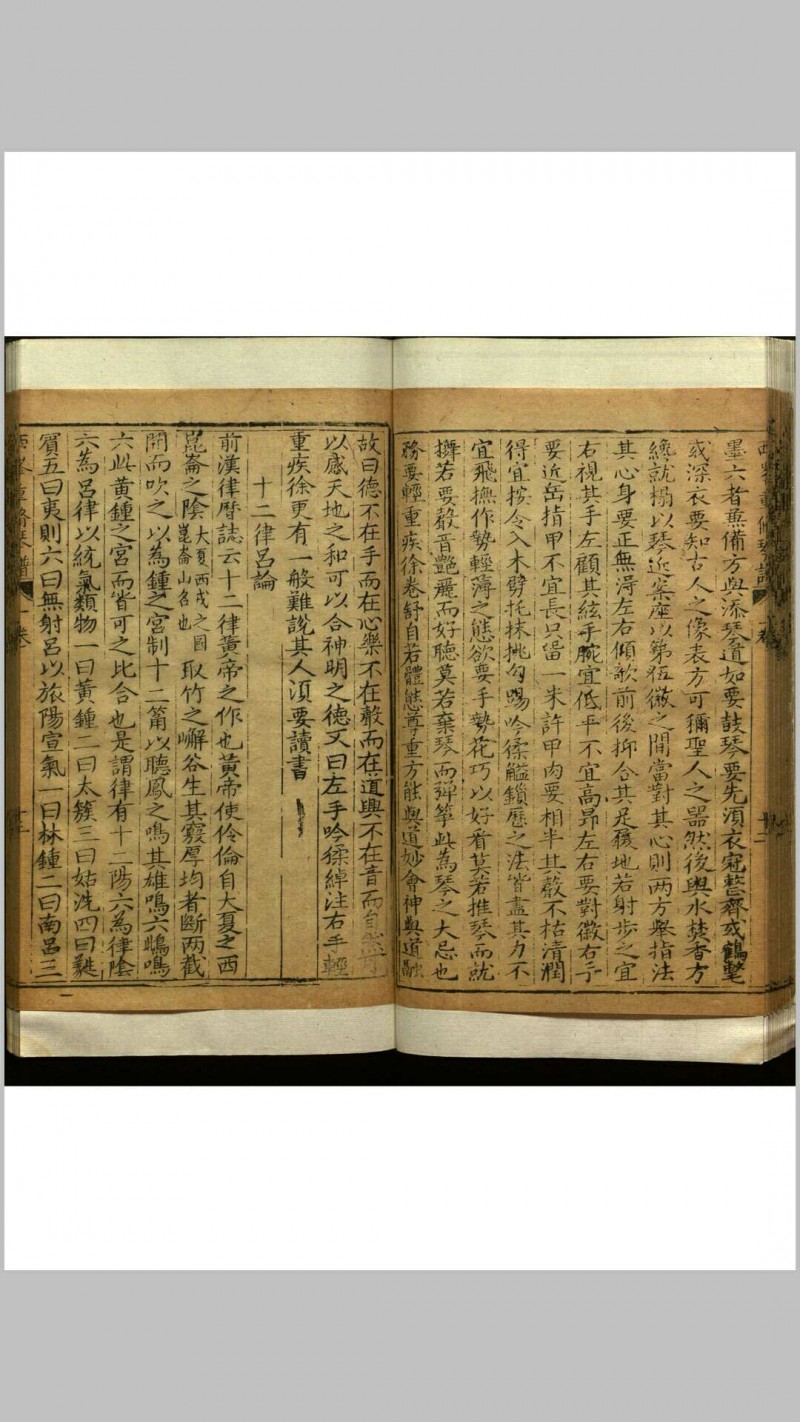 墨六者兼備方與添琴道如要鼓琴要先湏衣冠整齊或鶴氅
或深衣要知古人之像表方可彌聖人之噐然後與水焚香方
纔就榻以琴近案座以第伍徽之間當對其心則两方舉指法
其心身要正無淂左右傾欹前後抑合其足履地若射步之宜
右視其手左顧其絃手腕宜低平不宜高昂左右要對徽右手
要近岳指甲不宜長只留一米許甲肉要相半其聲不枯清潤
得宜按令入木劈托抹挑勾踢吟猱鎖歷之法皆盡其力不
宜飛撫作勢輕薄之態欲要手勢花巧以好看莫若推琴而就
舞若要聲音艷麗而好聽莫若棄琴而彈筝此為琴之大忌也
務要輕重疾徐卷舒自若體態尊重方能與道妙會神與道融
故曰德不在手而在心樂不在聲而在道興不在音而自然可
以感天地之和可以合神明之德又曰左手吟猱綽注右手輕
重疾徐更有一般難說其人湏要讀書
十二律呂論
前漢律曆誌云十二律黄帝之作也黄帝使伶倫自大夏之西
崑崙之陰大夏西戎之國崑崙山名也取竹之嶰谷生其竅厚均者断两截
間而吹之以為鍾之宮制十二筩以聽鳳之鳴其雄鳴六鴟鳴
六此黄鍾之宮而皆可之比合也是謂律有十二陽六為律陰
六為呂律以統氣類物一曰黄鍾二曰太簇三曰姑洗四曰蕤
賔五曰夷則六曰無射呂以旅陽宣氣一曰林鍾二曰南呂三